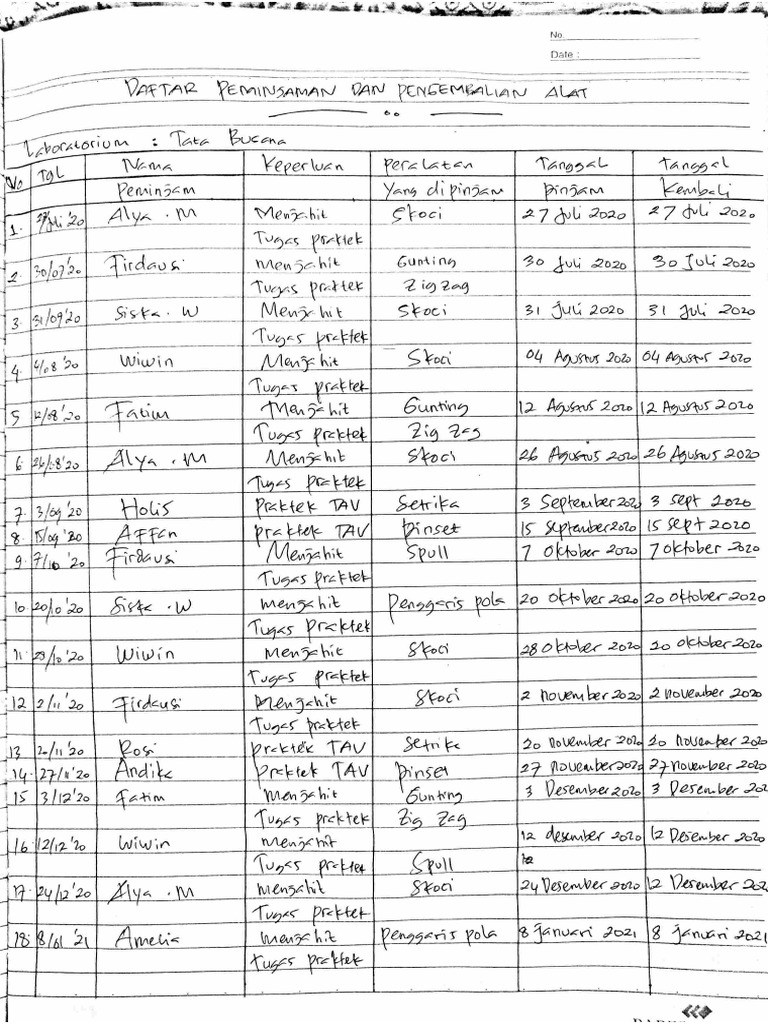 No.
Date :
DAFTAR PEMINJAMAN DAN PENGEMBALIAN ALAT
Laboratorium : Tata Busana
No Tgl Nama Keperluan Peralatan Tanggal Tanggal
Peminjam Yang dipinjam pinjam Kembali
1. 27/Juli '20 Alya . M Menjahit Skoci 27 Juli 2020 27 Juli 2020
Tugas praktek
2. 30/07'20 Firdausi menjahit Gunting 30 Juli 2020 30 Juli 2020
Tugas praktek Zig Zag
3. 31/09'20 Siska . W Menjahit Skoci 31 Juli 2020 31 Juli 2020
Tugas praktek
4. 4/08 '20 Wiwin Menjahit Skoci 04 Agustus 2020 04 Agustus 2020
Tugas praktek
5 12/08'20 Fatim Menjahit Gunting 12 Agustus 2020 12 Agustus 2020
Tugas praktek Zig Zag
6. 26/08'20 Alya . M Menjahit Skoci 26 Agustus 2020 26 Agustus 2020
Tugas praktek
7. 3/09'20 Holis praktek TAV Setrika 3 September 2020 3 Sept 2020
8. 15/09'20 AFFan praktek TAV pinset 15 September 2020 15 sept 2020
9. 7/10 '20 Firdausi Menjahit Spull 7 Oktober 2020 7 Oktober 2020
Tugas praktek
10. 20/10'20 Siska . W menjahit penggaris pola 20 Oktober 2020 20 Oktober 2020
Tugas praktek
11. /10'20 Wiwin Menjahit Skoci 28 Oktober 2020 20 Oktober 2020
Tugas praktek
12 2/11'20 Firdausi Menjahit Skoci 2 november 2020 2 november 2020
Tugas praktek
13 20/11'20 Rosi praktek TAV Setrika 20 november 2020 20 november 2020
14. 27/11'20 Andika praktek TAV pinset 27 november 2020 27 november 2020
15 3/12'20 Fatim Menjahit Gunting 3 Desember 2020 3 Desember 202
Tugas praktek Zig Zag
16 12/12'20 Wiwin menjahit 12 desember 2020 12 Desember 2020
Tugas praktek Spull
17. 24/12'20 Alya . M menjahit Skoci 24 Desember 2020 12 Desember 202
Tugas praktek
18. 8/01 '21 Amelia menjahit penggaris pola 8 januari 2021 8 januari 2021
tugas praktek